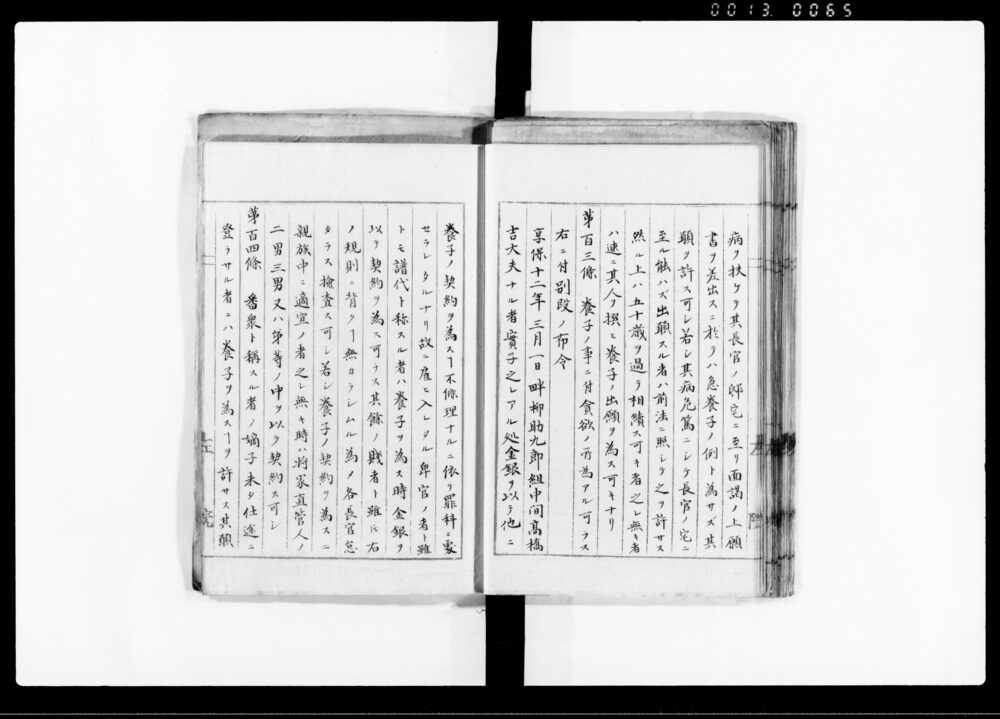 0013 0065
病ヲ扶ケテ其長官ノ邸宅ニ至リ面謁ノ上願
書ヲ差出スニ於テハ急養子ノ例ト為サズ其
願ヲ許ス可シ若シ其病危篤ニシテ長官ノ宅ニ
至ル能ハズ出願スル者ハ前法ニ照シテ之ヲ許サス
然ル上ハ五十歳ヲ過テ相續ス可キ者之レ無キ者
ハ速ニ其人ヲ撰ミ養子ノ出願ヲ為ス可キナリ
第百三條 養子ノ事ニ付貪欲ノ所為アル可ラス
右ニ付別段ノ布令
享保十二年三月一日畔柳助九郎組中间髙橋
吉大夫ナル者實子之レアル処金銀ヲ以テ他ニ
養子ノ契約ヲ為スヿ不條理ナルニ依リ罪科ニ處
セラレタルナリ故ニ雇ニ入レタル卑官ノ者ト雖
トモ譜代ト称スル者ハ養子ヲ為ス時金銀ヲ
以テ契約ヲ為ス可ラス其餘ノ賤者ト雖に右
ノ規則ニ背クヿ無カラシムル為メ各長官怠
タラス検査ス可シ若シ養子ノ契約ヲ為スニ
親族中ニ適宜ノ者之レ無キ時ハ将家直管人ノ
二男三男又ハ弟等ノ中ヲ以テ契約ス可シ
第百四條 番衆ト稱スル者ノ嫡子未タ仕途ニ
登ラサル者ニハ養子ヲ為スヿヲ許サス其願